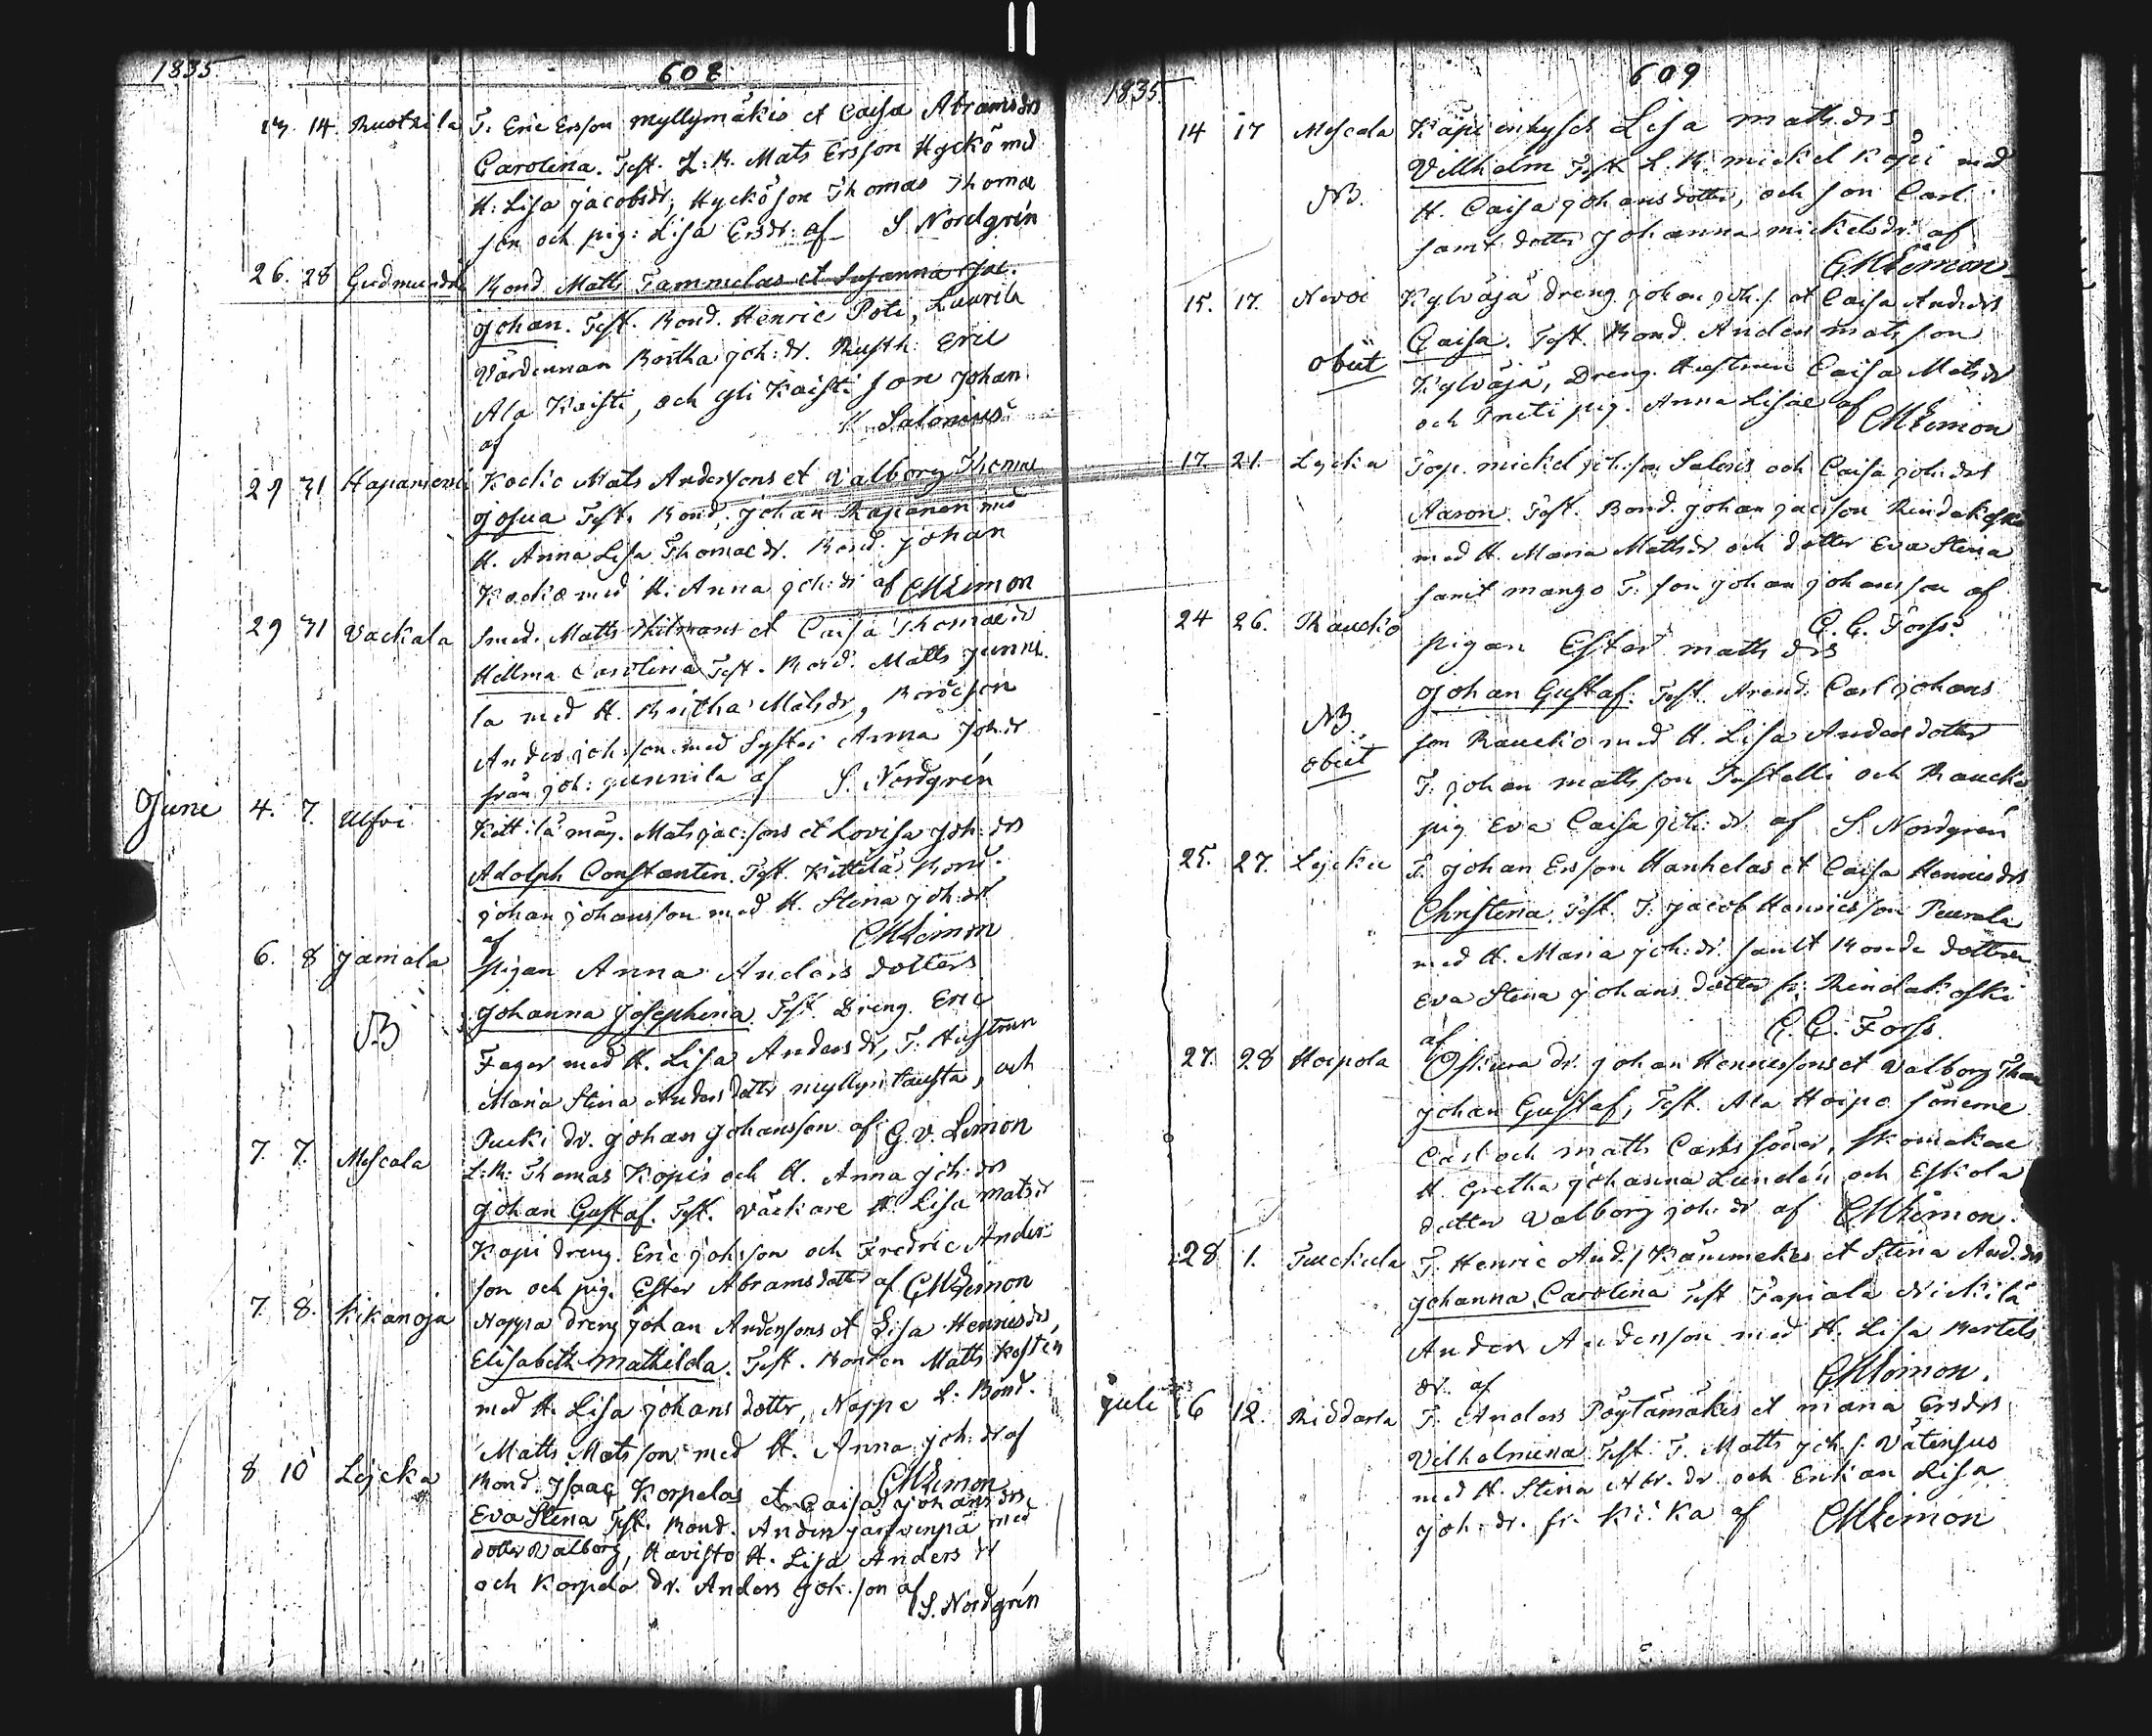 1835. 608
13. 14. Ruotsila T. Eric Ersson Myllymäkis et Caisa Abramsdrs
Carolina. Test. L: B. Mats Ersson Hyckö med
H. Lisa Jacobsdr, Hyckö son Thomas Thomæ
son och pig: Lisa Ersdr. af S Nordgrén
26. 28 Bond. Matts Tammelas et Susanna Jac.
Johan. Test. Bond. Henric Poti, Laurila
Värdinnan Beitha Joh: dr. Rusth: Eric
Ala Kaisti, och Yli Kaisti son Johan
af Salonius
29 31 Mats Anderssons et Valborg Thomæ
Josua Test. Bond. Johan Rapanen med
H. Anna Lisa Thomædr. Bond. Johan
med H. Anna Joh: dr af CMLimon
29 31 Vackala Smed. Matts et Caisa Thomædr
Hellma Carolina Test. Bond. Matts Junni
la med H. Beitha Matsdr, Bondeson
Anders Joh: son med Syster Anna Joh: dr
från Joh: Junnila af S. Nordgrén
Juni 4. 7. Ulfvi Kittilä måg. Mats Jac: sons et Lovisa Joh: drs
Adolph Constantin. Test. Kittilä Bond.
Johan Johansson med H. Stina Joh: dr
af CMLimon
6. 8 Jamala Pigan Anna Anders dotters
NB Johanna Josephina. Test. Dreng. Eric
Fager med H. Lisa Andersdr, T: Hustrun
Maria Stina Anders dottr Myllyntausta, och
Pucki dr. Johan Johansson af G. V. Limon
7. 7. Mescala L: B: Thomas Köpis och H. Anna Joh: drs
Johan Gustaf. Test. Väckare H. Lisa Matsdr
Köpi dreng. Eric Johsson och Fredric Anders
son och pig. Ester Abramsdotter af CMLimon
7. 8. Kikanoja Nappa dreng Johan Anderssons et Lisa Henricsdrs,
Elisabeth Mathilda. Test. Bonden Matts Kosten
med H. Lisa Johans dottr, Nappa L: Bond.
Matts Matsson med H. Anna Joh: dr af
CMLimon
8 10 Lycka Bond. Isaac Korpelas et Caisa Johansdrs
Eva Stina Test. Bond. Anders Järvenpä med
dotter Valborg, Havisto H. Lisa Anders dr
och Korpela dr. Anders Joh. son af
S. Nordgrén
1835. 609
14 17 Mescala Köpi inhyses Lisa Mathsdrs
Villhelm Test L. B. Mickel Köpi med
NB. H. Caisa Johans dotter, och son Carl
samt dotter Johanna Mickelsdr. af
CMLimon
15. 17. Kylväjä Dreng Johan Joh. s. et Caisa Andersdrs
Caisa. Test. Bond. Anders Mats son
obiit Kylväjä, Dreng. Hustrun Caisa Matsdr
och pig. Anna Lisa af
CMLimon
17. 21. Lycka Torp. Mickel Joh: son Salois och Caisa Joh: drs
Aaron. Test. Bond. Johan Jacsson Rindakoski
med H. Maria Mathsdr och dotter Eva Stina
samt T. son Johan Johansson af
C. C. Forss.
24 26. Raucko Pigan Ester Matts drs
Johan Gustaf. Test. Arend. Carl Johans
NB. son Raucko med H. Lisa Anders dotter
obiit T. Johan Matts son Pustelli och Raucko
pig Eva Caisa Joh: dr af S. Nordgrén
25. 27. Lycka T. Johan Ersson Hanhelas et Caisa Henricsdrs
Christina. Test. T. Jacob Henricsson Peurala
med H. Maria Joh: dr. samt Bonde dottren
Eva Stina Johans dotter fr: Rindakoski
af C. C. Forss.
27. 28 Hoipola dr. Johan Henrissons et Valborg
Johan Gustaf, Test. Ala Hoipo sönerne
Carl och Matts Carls söner, skomakare
H. Gretha Johanna Lundén och Eskola
dotter Valborg Joh: dr af CMLimon.
28 1. T. Henric And. s. et Stina And. drs
Johanna Carolina Test Tapiala Nickilä
Anders Andersson med H. Lisa Bertels
dr. af CMLimon.
Juli 6 12. Riddarla T. Anders Pöytämäkis et Maria Ersdrs
Vilhelmina Test. T. Matts Joh. s. Vätensus
med H. Stina Abr. dr. och Enkan Lisa
Joh: dr. fr. Kicka af CMLimon